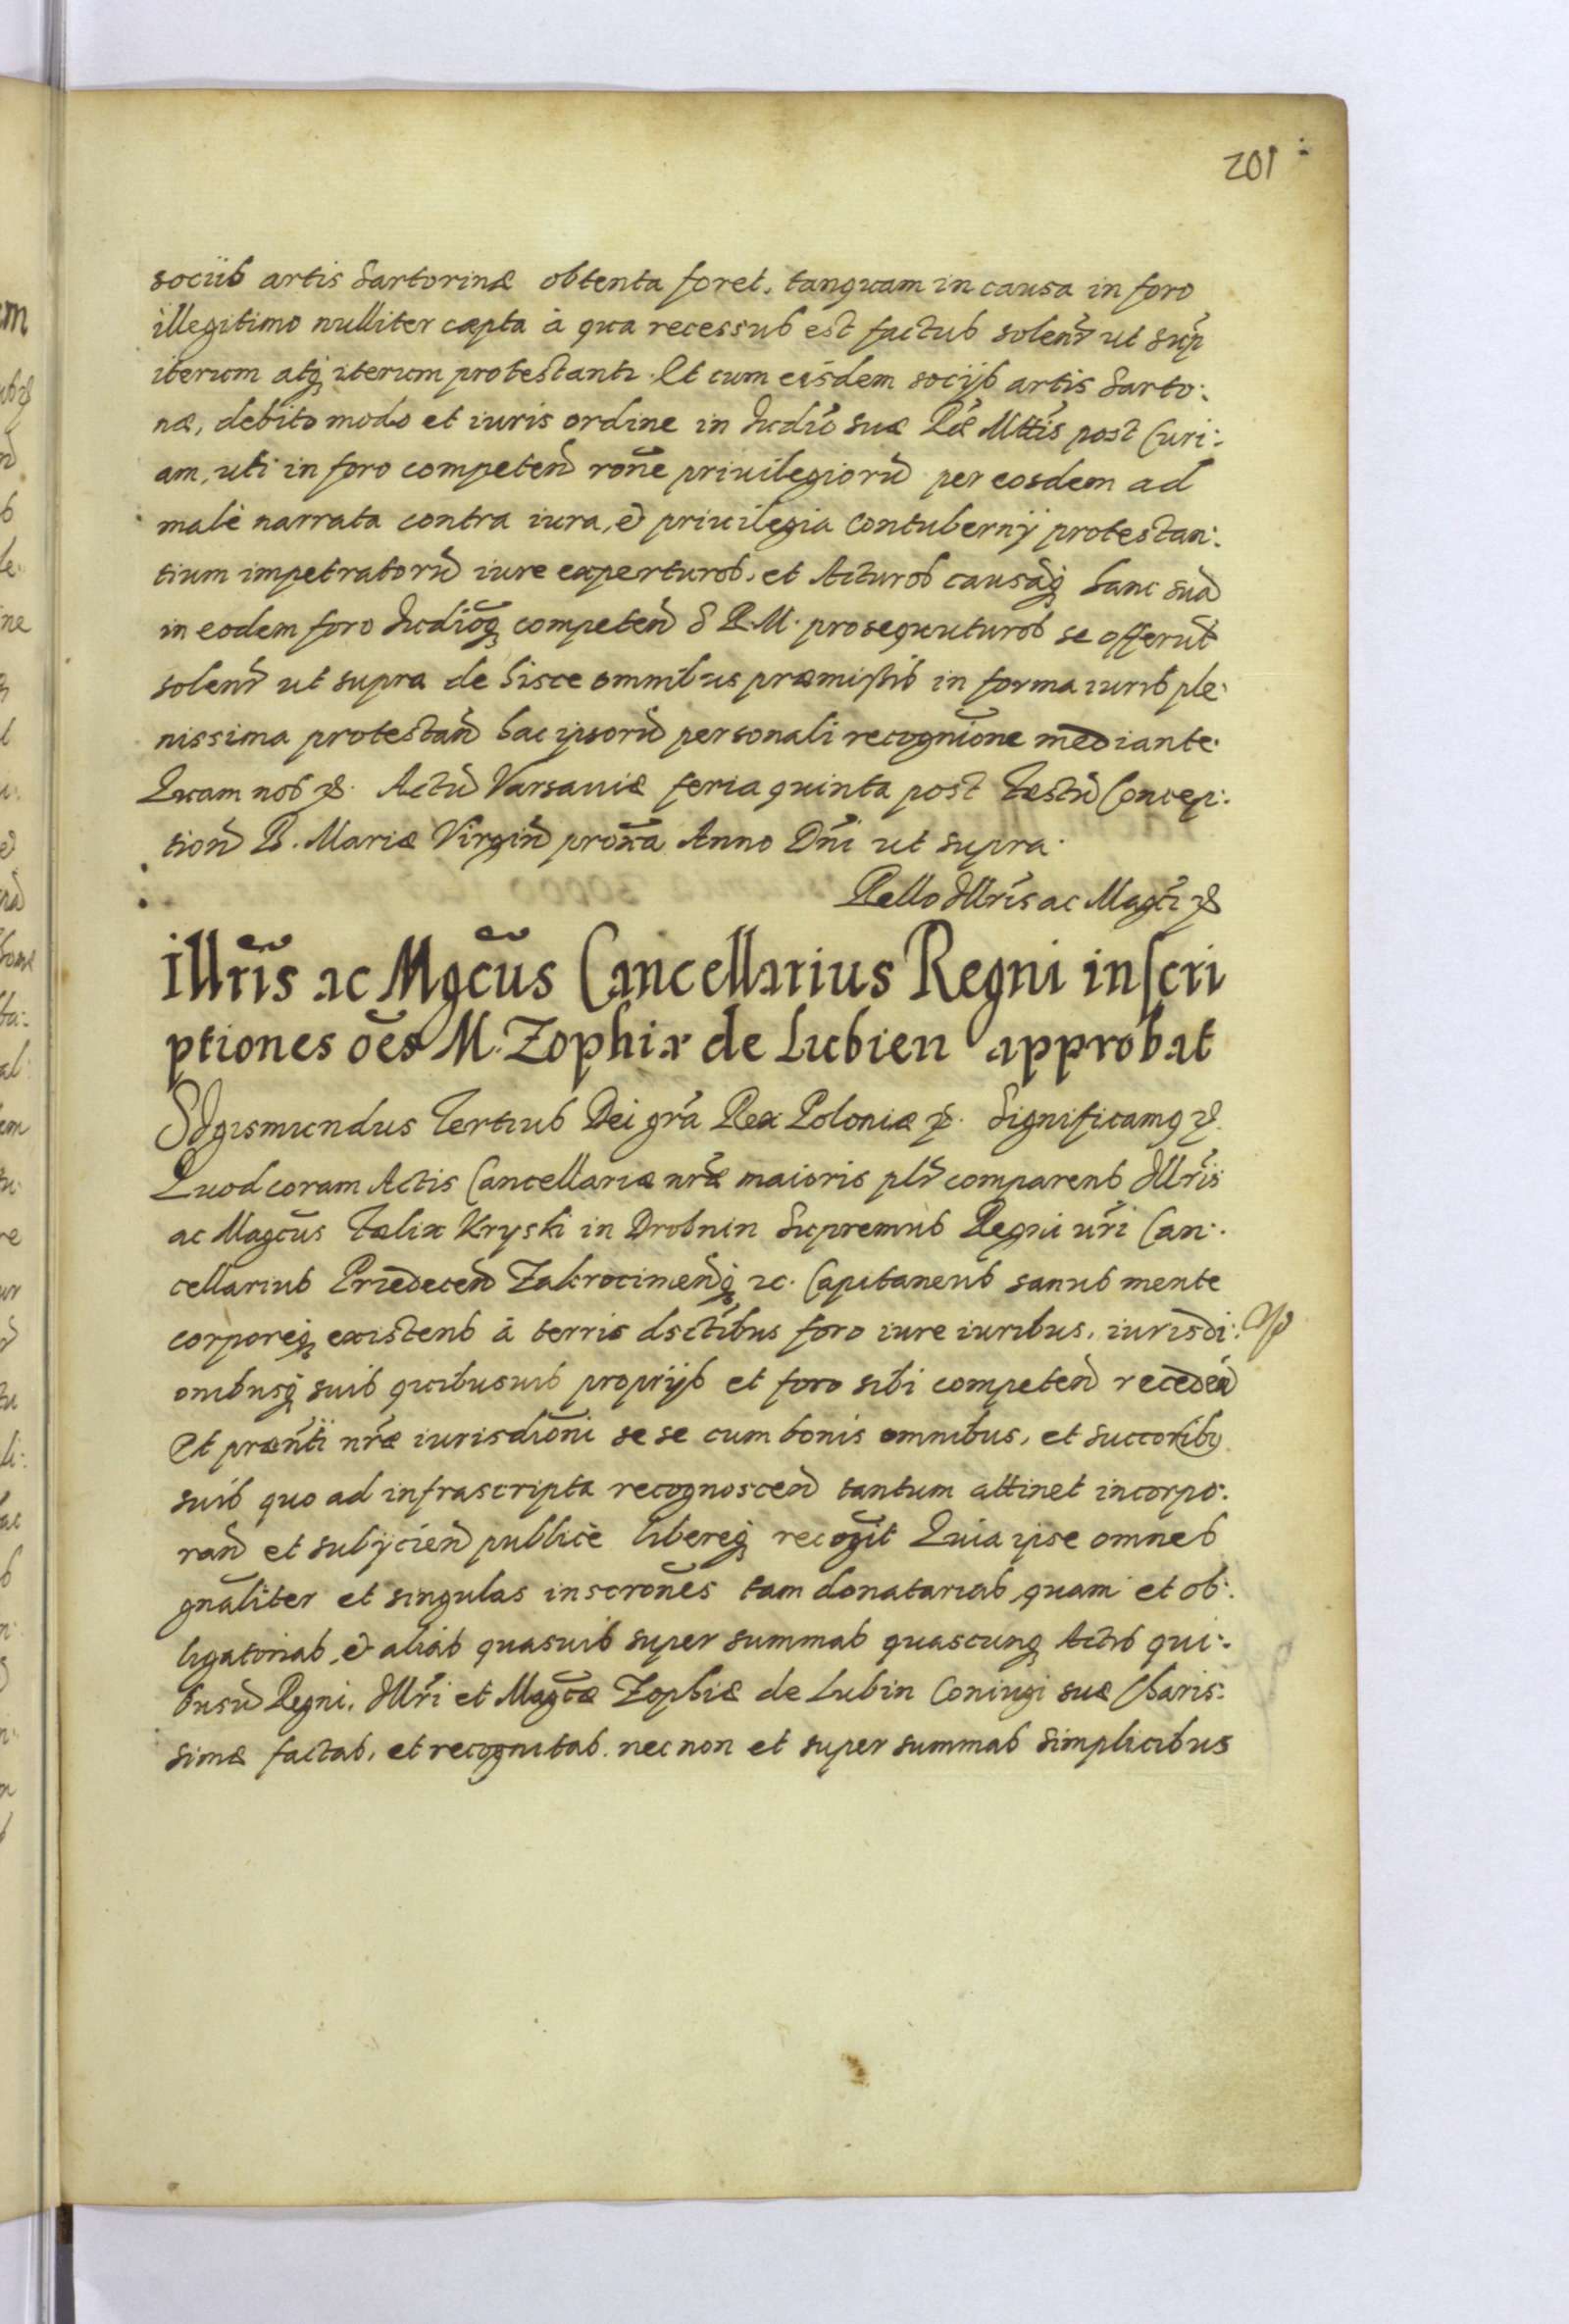 201
sociis artis Sartorinæ obtenta foret, tanquam in causa in foro
illegitimo nulliter cæpta à qua recessus est factus solenr̃ ut sup̃
iterum atq́ iterum protestanti. Et cum eisdem socijs artis Sarto:
næ, debito modo et iuris ordine in Iudiõ suæ Rǣ Mttis̃ post Curi:
am, uti in foro competen̄ rõne priuilegiorū per eosdem ad
malè narrata contra iura, & priuilegia Contubernij protestan:
tium impetratorū iure experturos, et Acturos causāq́ hanc suā
in eodem foro Iudiõq́ competen̄ S R. M. prosequuturos se offerūt
solenr̃ ut supra de hisce omnibus præmissis in forma iuris ple:
nissima protestan̄ hac ipsorū personali recognĩone mediante.
Quam nos &. Actū Varsauiæ feria quinta post Fæstū Concep:
tion̄ B. Mariæ Virgin̄ proxã Anno Dñi ut supra.
Rello Illris̃ ac Magci̇̃ &
Illris̃ ac Mgcũs Cancellarius Regni inscri
ptiones oẽs M. Zophiæ de Lubien approbat
Sigismundus Tertius Dei grã Rex Poloniæ &. Significamq &.
Quod coram Actis Cancellariæ nrǣ maioris plr̃ comparens Illris̃
ac Magcũs Fælix Kryski in Drobnin Supremus Regni nri̇̃ Can:
cellarius Priedecen̄ Zakrocimen̄q́ &c. Capitaneus sanus mente
corporeq́ existens à terris dsctĩbus foro iure iuribus, iurisdi:
onibusq́ suis quibusuis proprijs et foro sibi competen̄ receden̄
Et præñti nrǣ iurisdiõni se se cum bonis omnibus, et succorib9
suis quo ad infrascripta recognoscen̄ tantum attinet incorpo:
ran̄ et subijcien̄ publicè libereq́ recogĩt Quia ipse omnes
gnãliter et singulas inscrõnes tam donatarias quam et ob:
ligatorias, & alias quasuis super summas quascunq́ Actis qui:
busū Regni, Illri̇̃ et Magcǣ Zophiæ de Lubin Coniugi suæ Charis:
simæ factas, et recognitas. nec non et super summas simplicibus